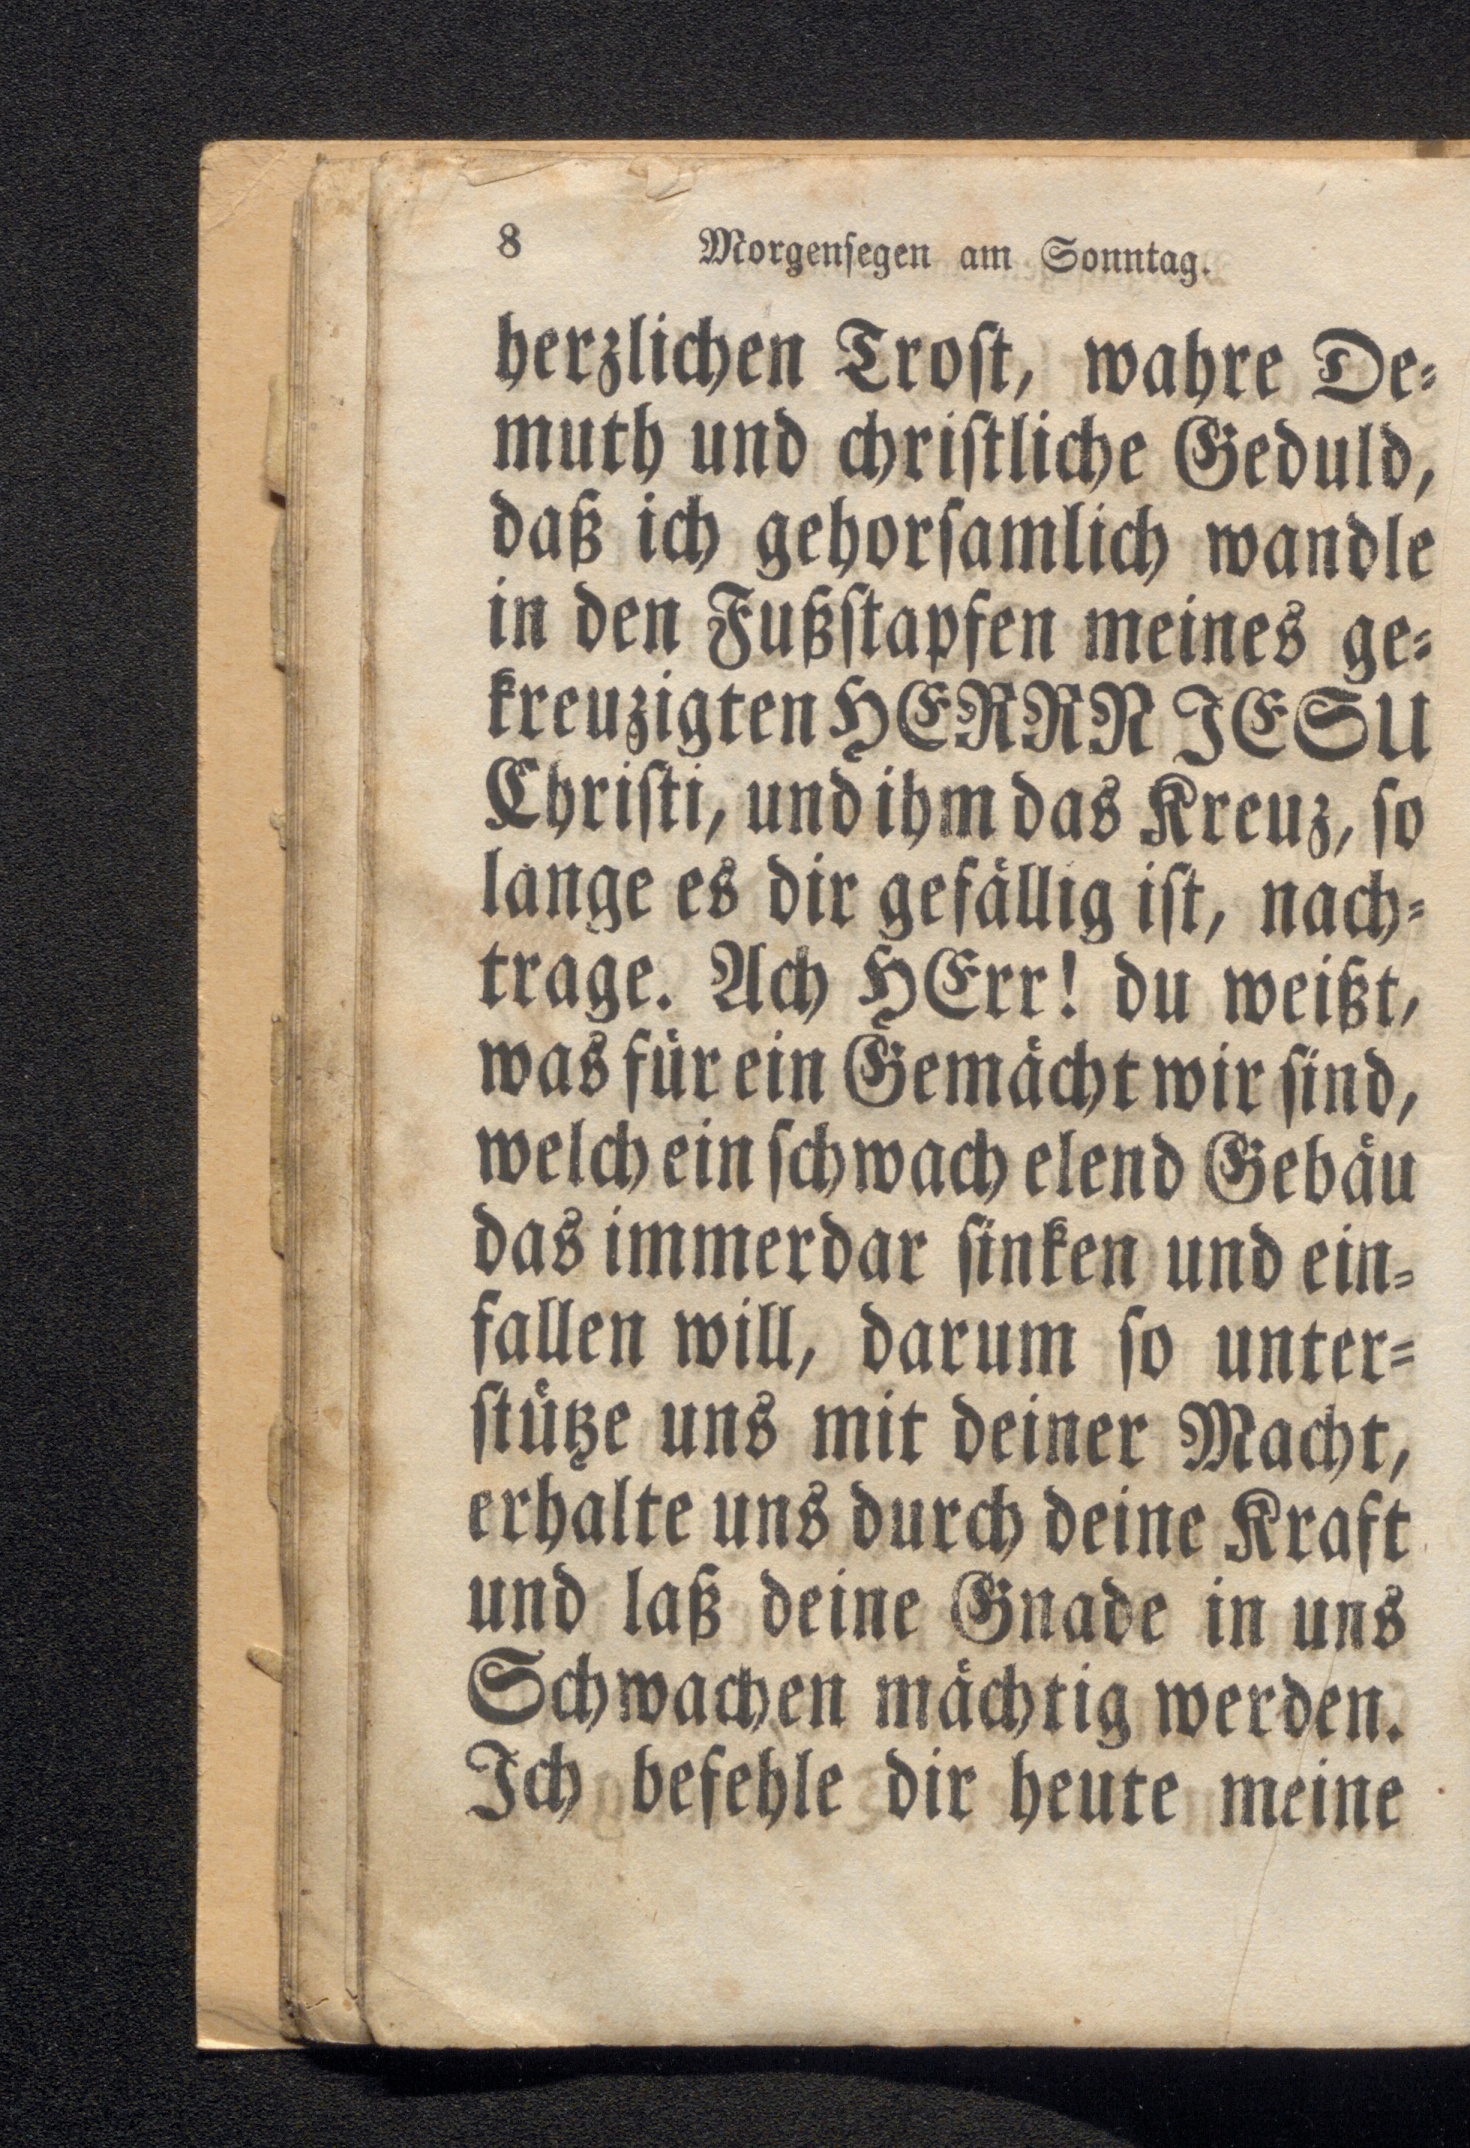 8 Morgenſegen am Sonntag.
herzlichen Troſt, wahre De⸗
muth und chriſtliche Geduld,
daß ich gehorſamlich wandle
in den Fußſtapfen meines ge⸗
kreuzigten HERRN JESU
Chriſti, und ihm das Kreuz, ſo
lange es dir gefällig iſt, nach⸗
trage. Ach HErr! du weißt,
was für ein Gemächt wir ſind,
welch ein ſchwach elend Gebäu
das immerdar ſinken und ein⸗
fallen will, darum ſo unter⸗
ſtütze uns mit deiner Macht,
erhalte uns durch deine Kraft
und laß deine Gnade in uns
Schwachen mächtig werden.
Ich befehle dir heute meine